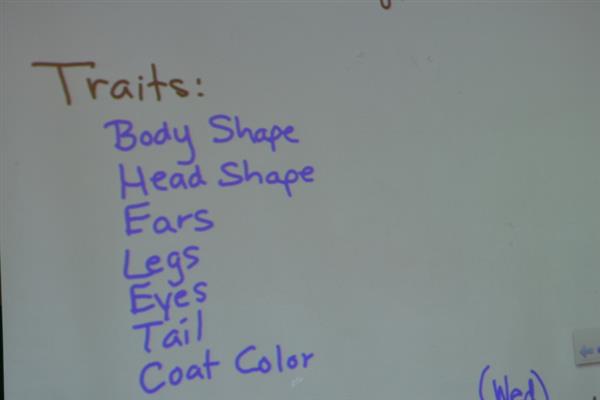 Traits:
Body Shape
Head Shape
Ears
Legs
Eyes
Tail
Coat Color
(Wed)